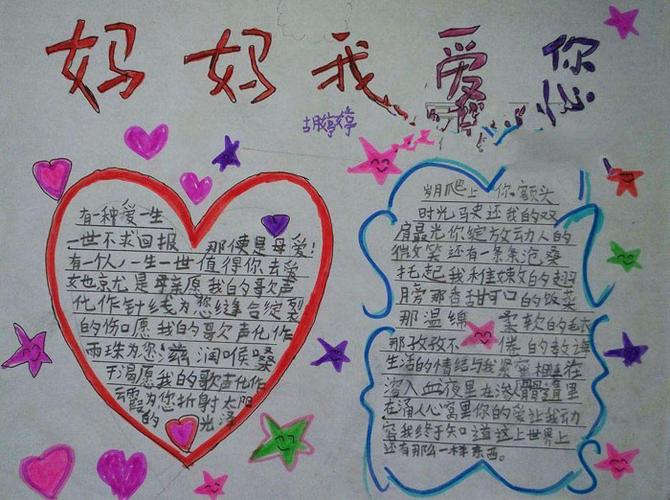 妈妈我爱你
胡婷婷
有一种爱一生
一世不求回报 那便是母爱!
有一个人一生一世值得你去爱
她也就是母亲原我的歌声
化作针线为您缝合绽裂
的伤口愿我的歌欠声化作
雨珠为您滋润喉嗓
干渴愿我的歌声化作
云霞为您折射太阳
的光泽
岁月爬上你额头
时光马史还我的双
肩最光你绽放动人的
微笑还有一条条沧桑
托起我稚嫩的翅
膀那香甜可口的饭菜
那温绵 柔软的毛衣
那孜孜不倦的教诲
生活的情结与我紧密相连在
溶入血液里在渗骨髓里
在涌入心窝里你的爱让我动
容我终于知道这上世界上
还有那么一样东西。